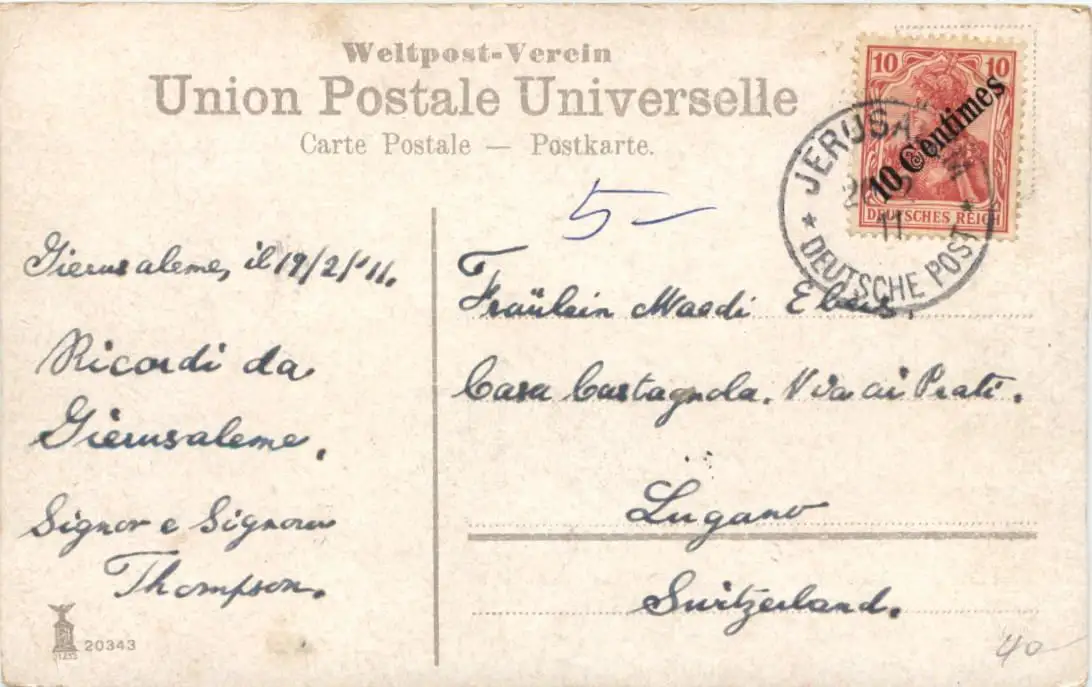 Weltpost-Verein
Union Postale Universelle
Carte Postale — Postkarte.
10 10
10 Centimes
DEUTSCHES REICH
JERUSALEM
11
DEUTSCHE POST
5-
Gierusaleme, il 19/2/'11.
Ricordi da
Gierusaleme.
Signor e Signora
Thompson.
Fräulein Maedi
Casa Castagnola. Via ai Prati.
Lugano
Switzerland.
20343
40